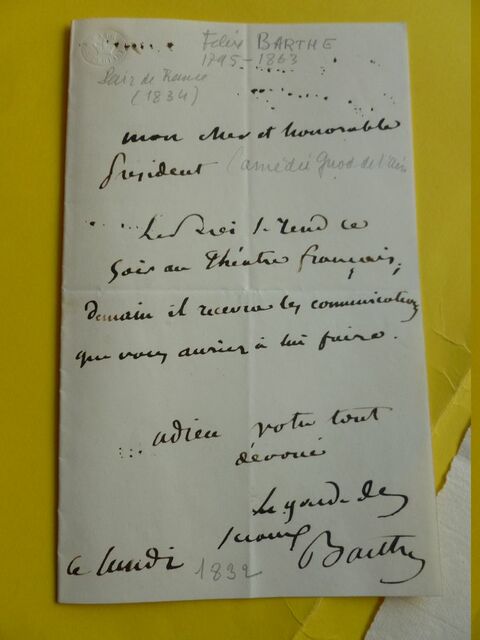 Félix BARTHE
1795-1863
Pair de France
(1834)
mon cher et honorable
président (amédée Girod de l'Ain
Le Roi se rend ce
soir au théâtre français;
demain il recevra les communications
que vous auriez à lui faire.
adieu votre tout
dévoué
le garde des
sceaux
Barthe
ce lundi 1832